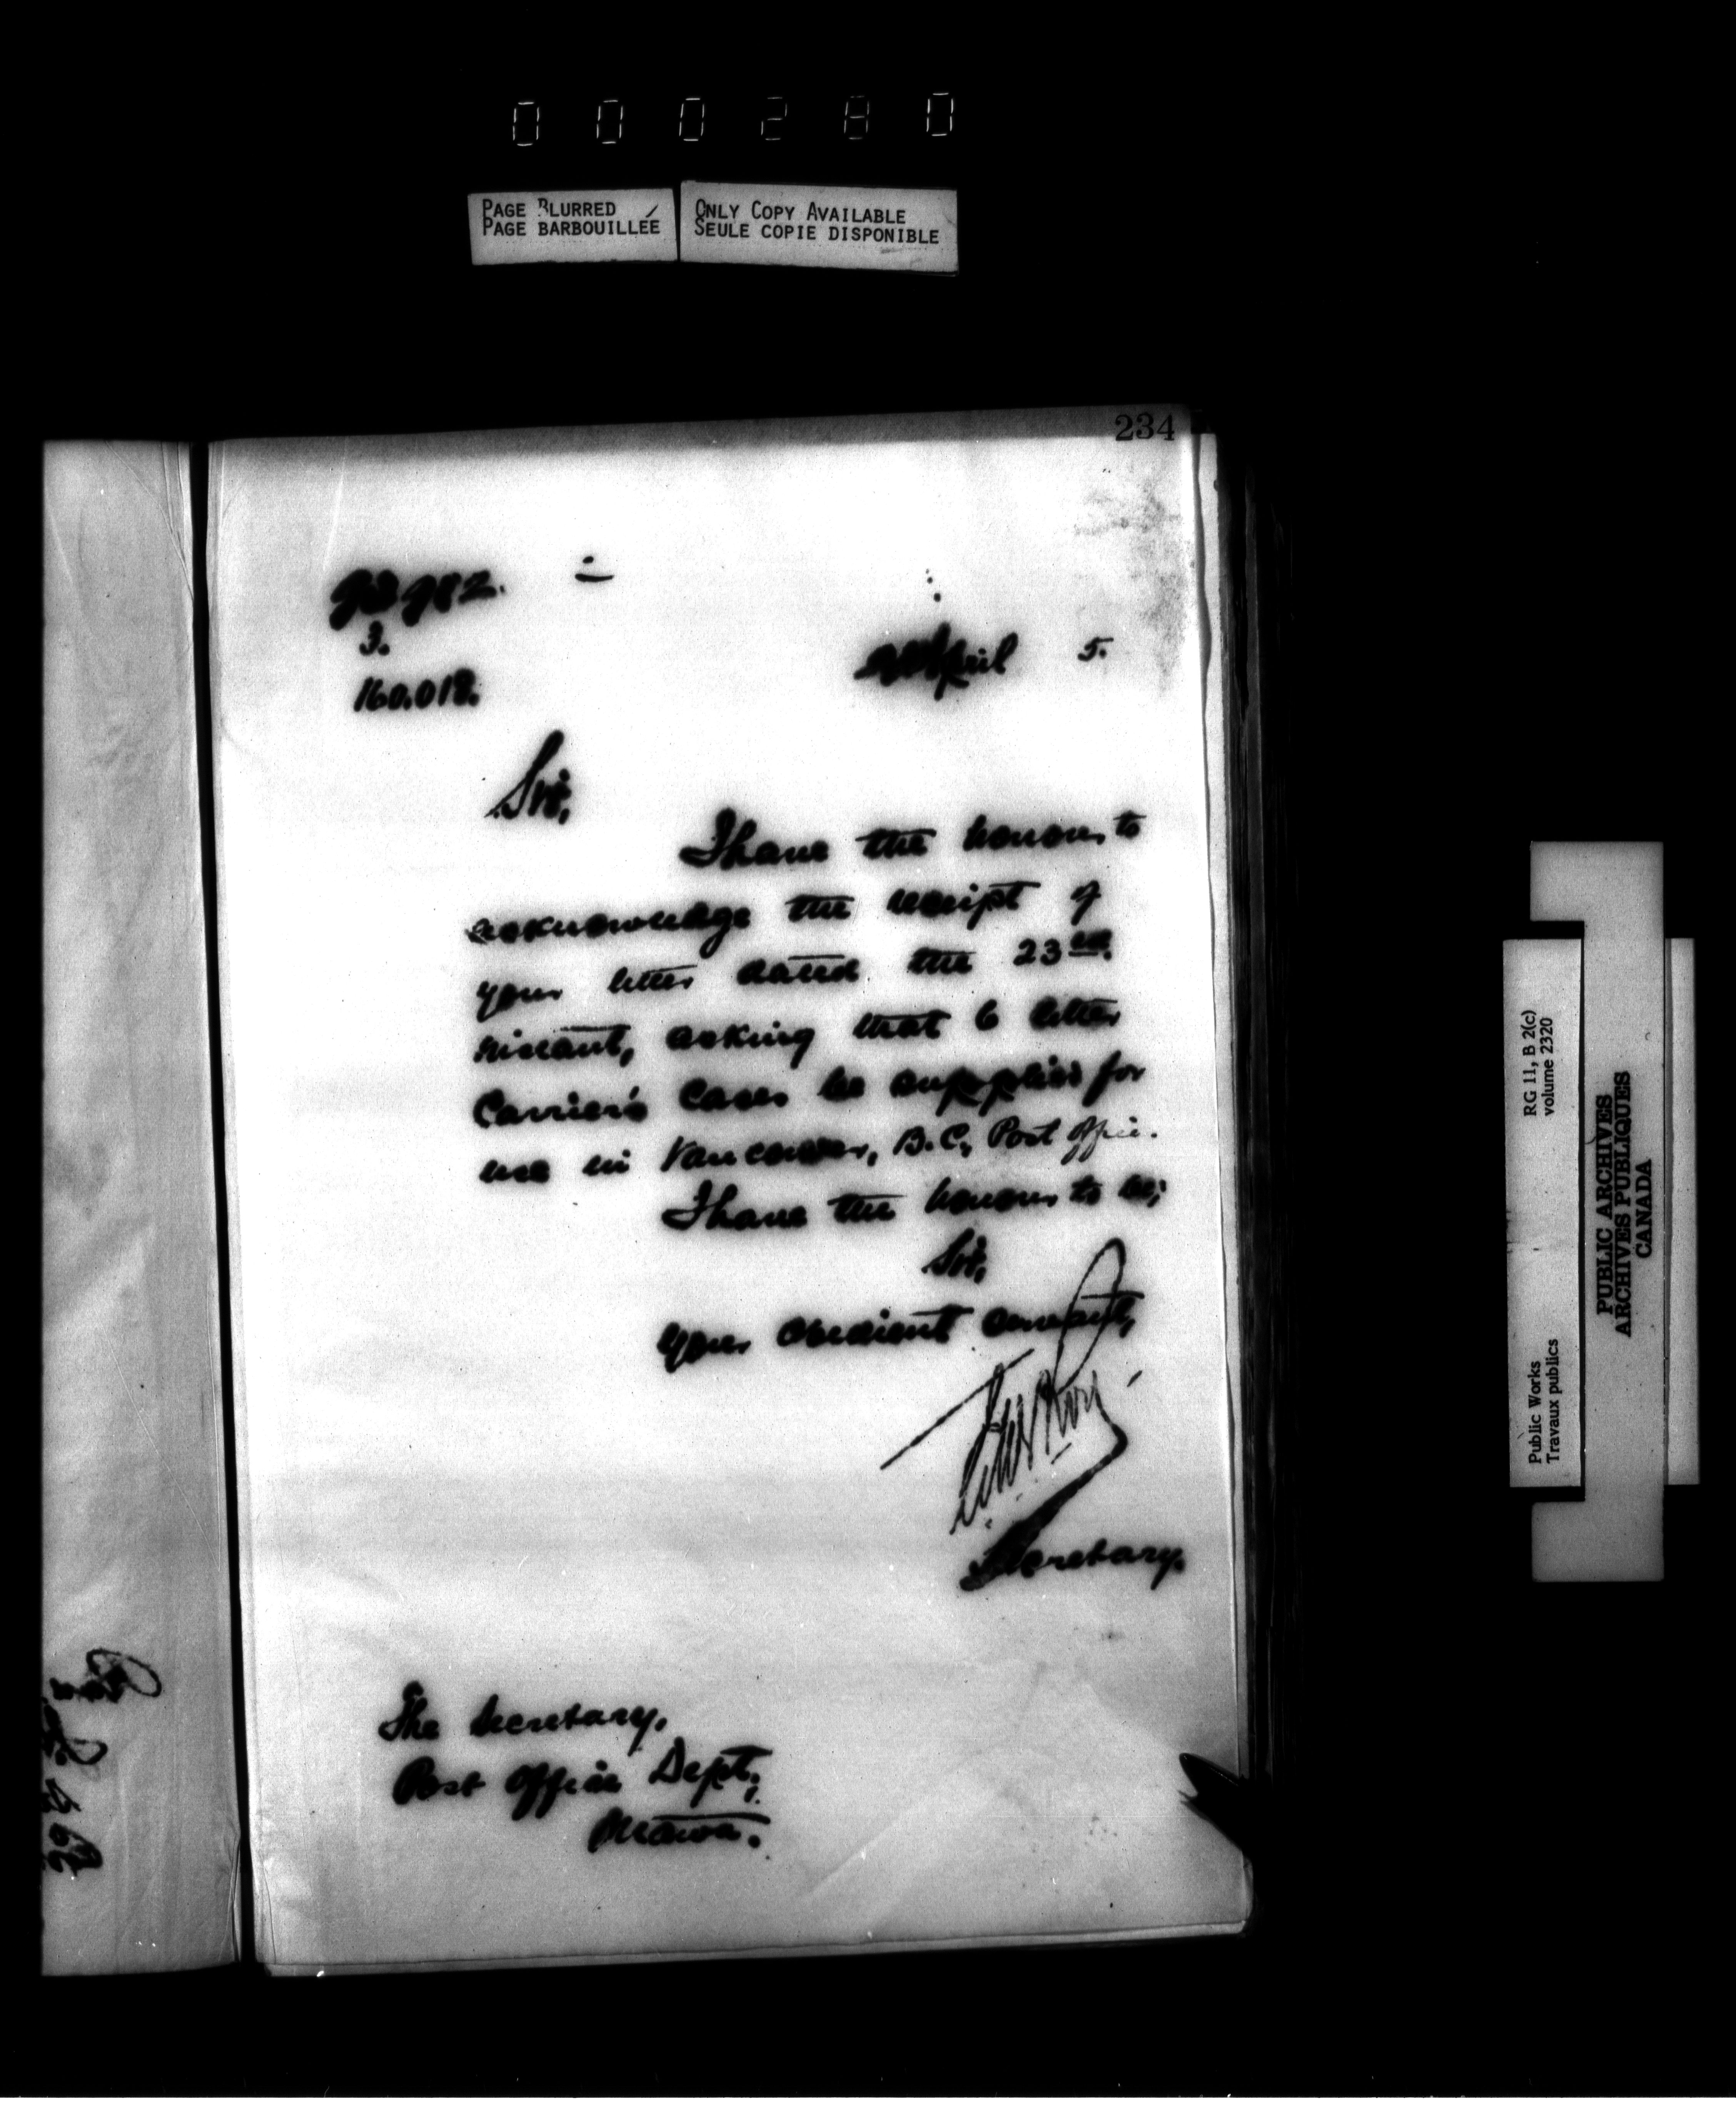 000280
PAGE BLURRED
PAGE BARBOUILLÉE
ONLY COPY AVAILABLE
SEULE COPIE DISPONIBLE
234
3.
160.018.
April 5.
Sir,
I have the honour to
acknowledge the receipt of
your letter dated the 23rd
instant, asking that 6 letter
Carrier's Cases be supplied for
use in Vancouver, B.C., Post Office.
I have the honour to be,
Sir,
Your obedient servant,
Secretary.
The Secretary,
Post Office Dept.,
Ottawa.
RG 11, B 2(c)
volume 2320
Public Works
Travaux publics
PUBLIC ARCHIVES
ARCHIVES PUBLIQUES
CANADA